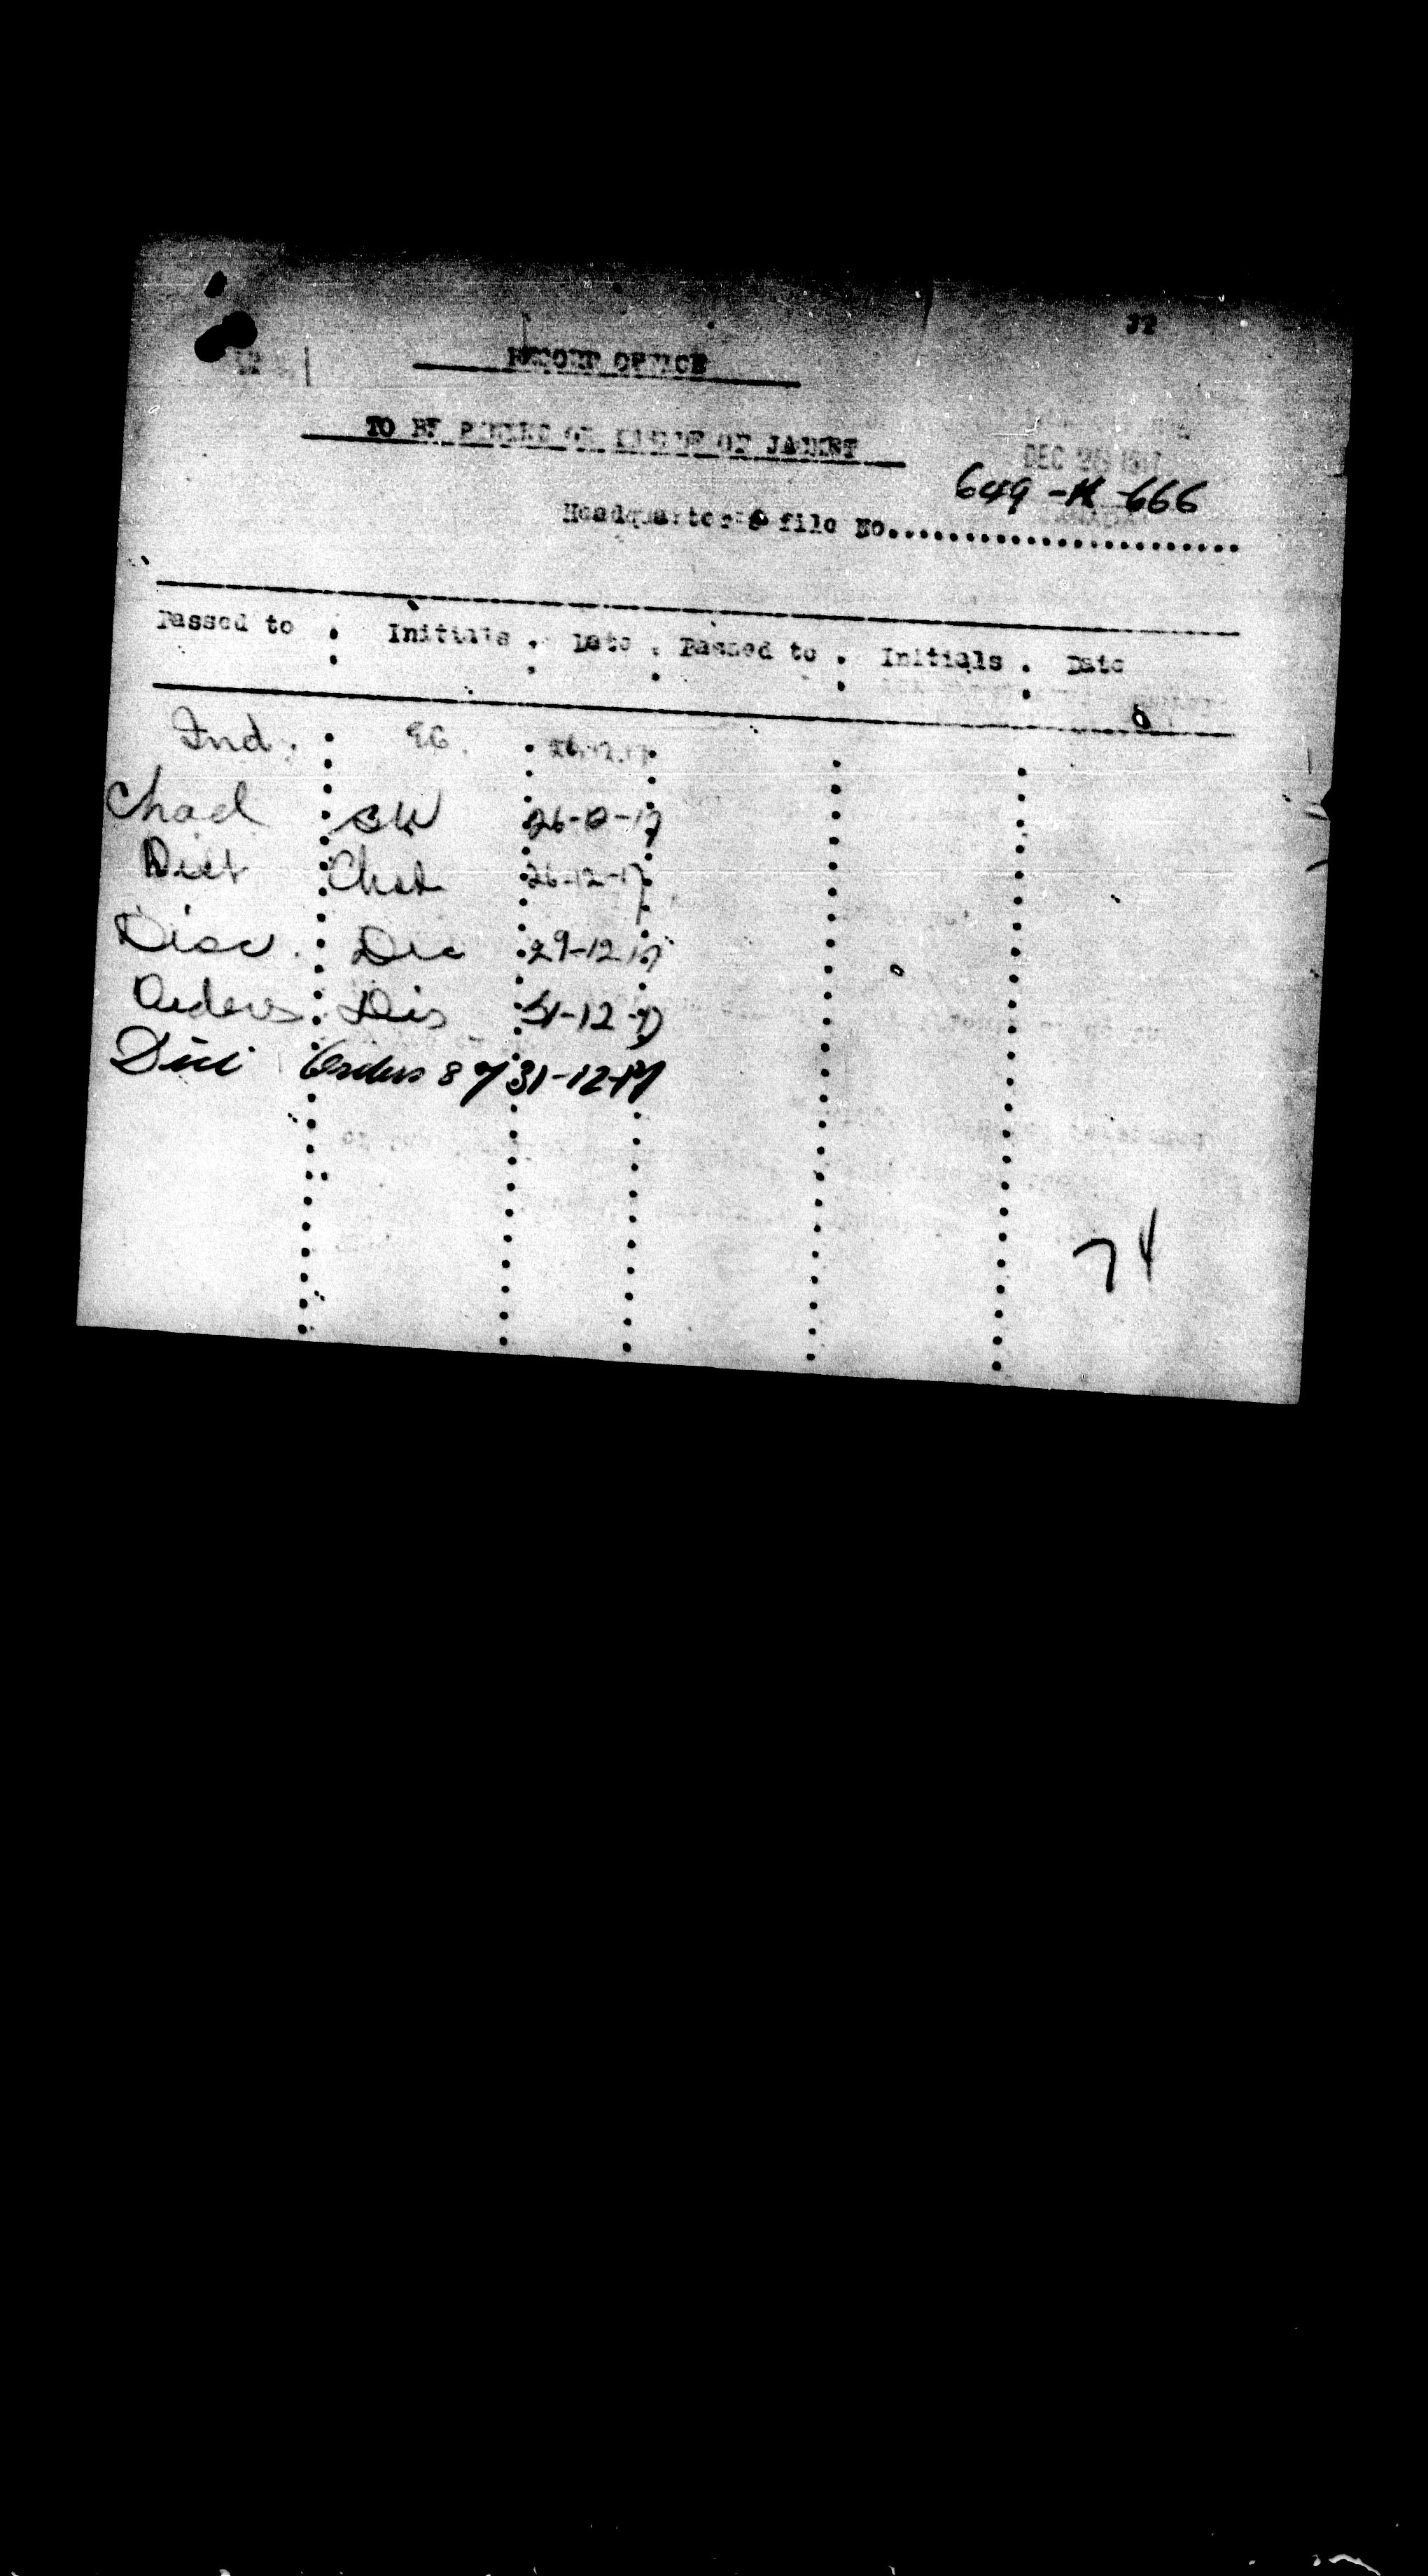 RECORD OFFICE
TO BE OF JACKET
DEC 1917
649-H-666
Headquarter's file No........................
Passed to : Initials : Date : Passed to : Initials : Date
Ind. EC. 26.12.17
Chad 26-12-17
Dist Chad 26-12-17
Disc. Dis 29-12-17
Orders Dis 31-12-17
Orders 31-12-17
74